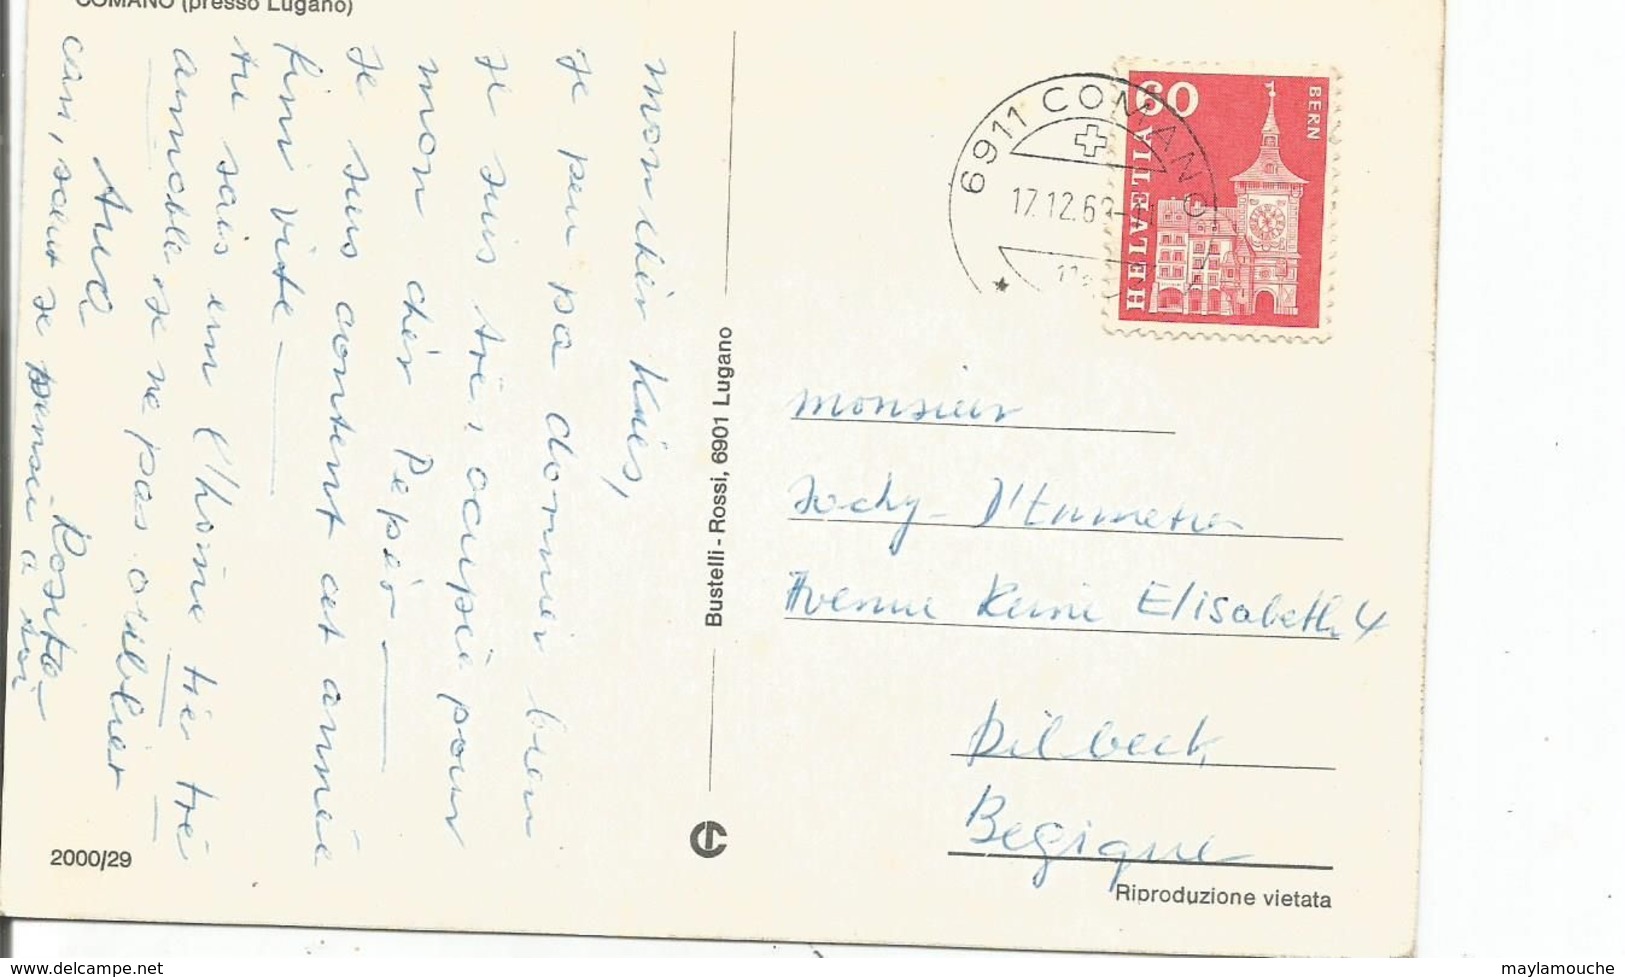 COMANO (presso Lugano)
mon chèr Kiès,
Je peu pa donner bien
Je suis très ocupée pour
mon chèr Pepèr —
Je suis content cet année
fini vite —
tu sais em l'home trè trè
aimeble je ne pas oublier
cem, salut je pensai a toi
Ava
Rosita
2000/29
Bustelli - Rossi, 6901 Lugano
6911 COMANO
17.12.6
BERN
60
HELVETIA
monsieur
Jochy - D'
Avenue Reine Elisabeth 4
Dilbeek
Begique
Riproduzione vietata
www.delcampe.net
maylamouche